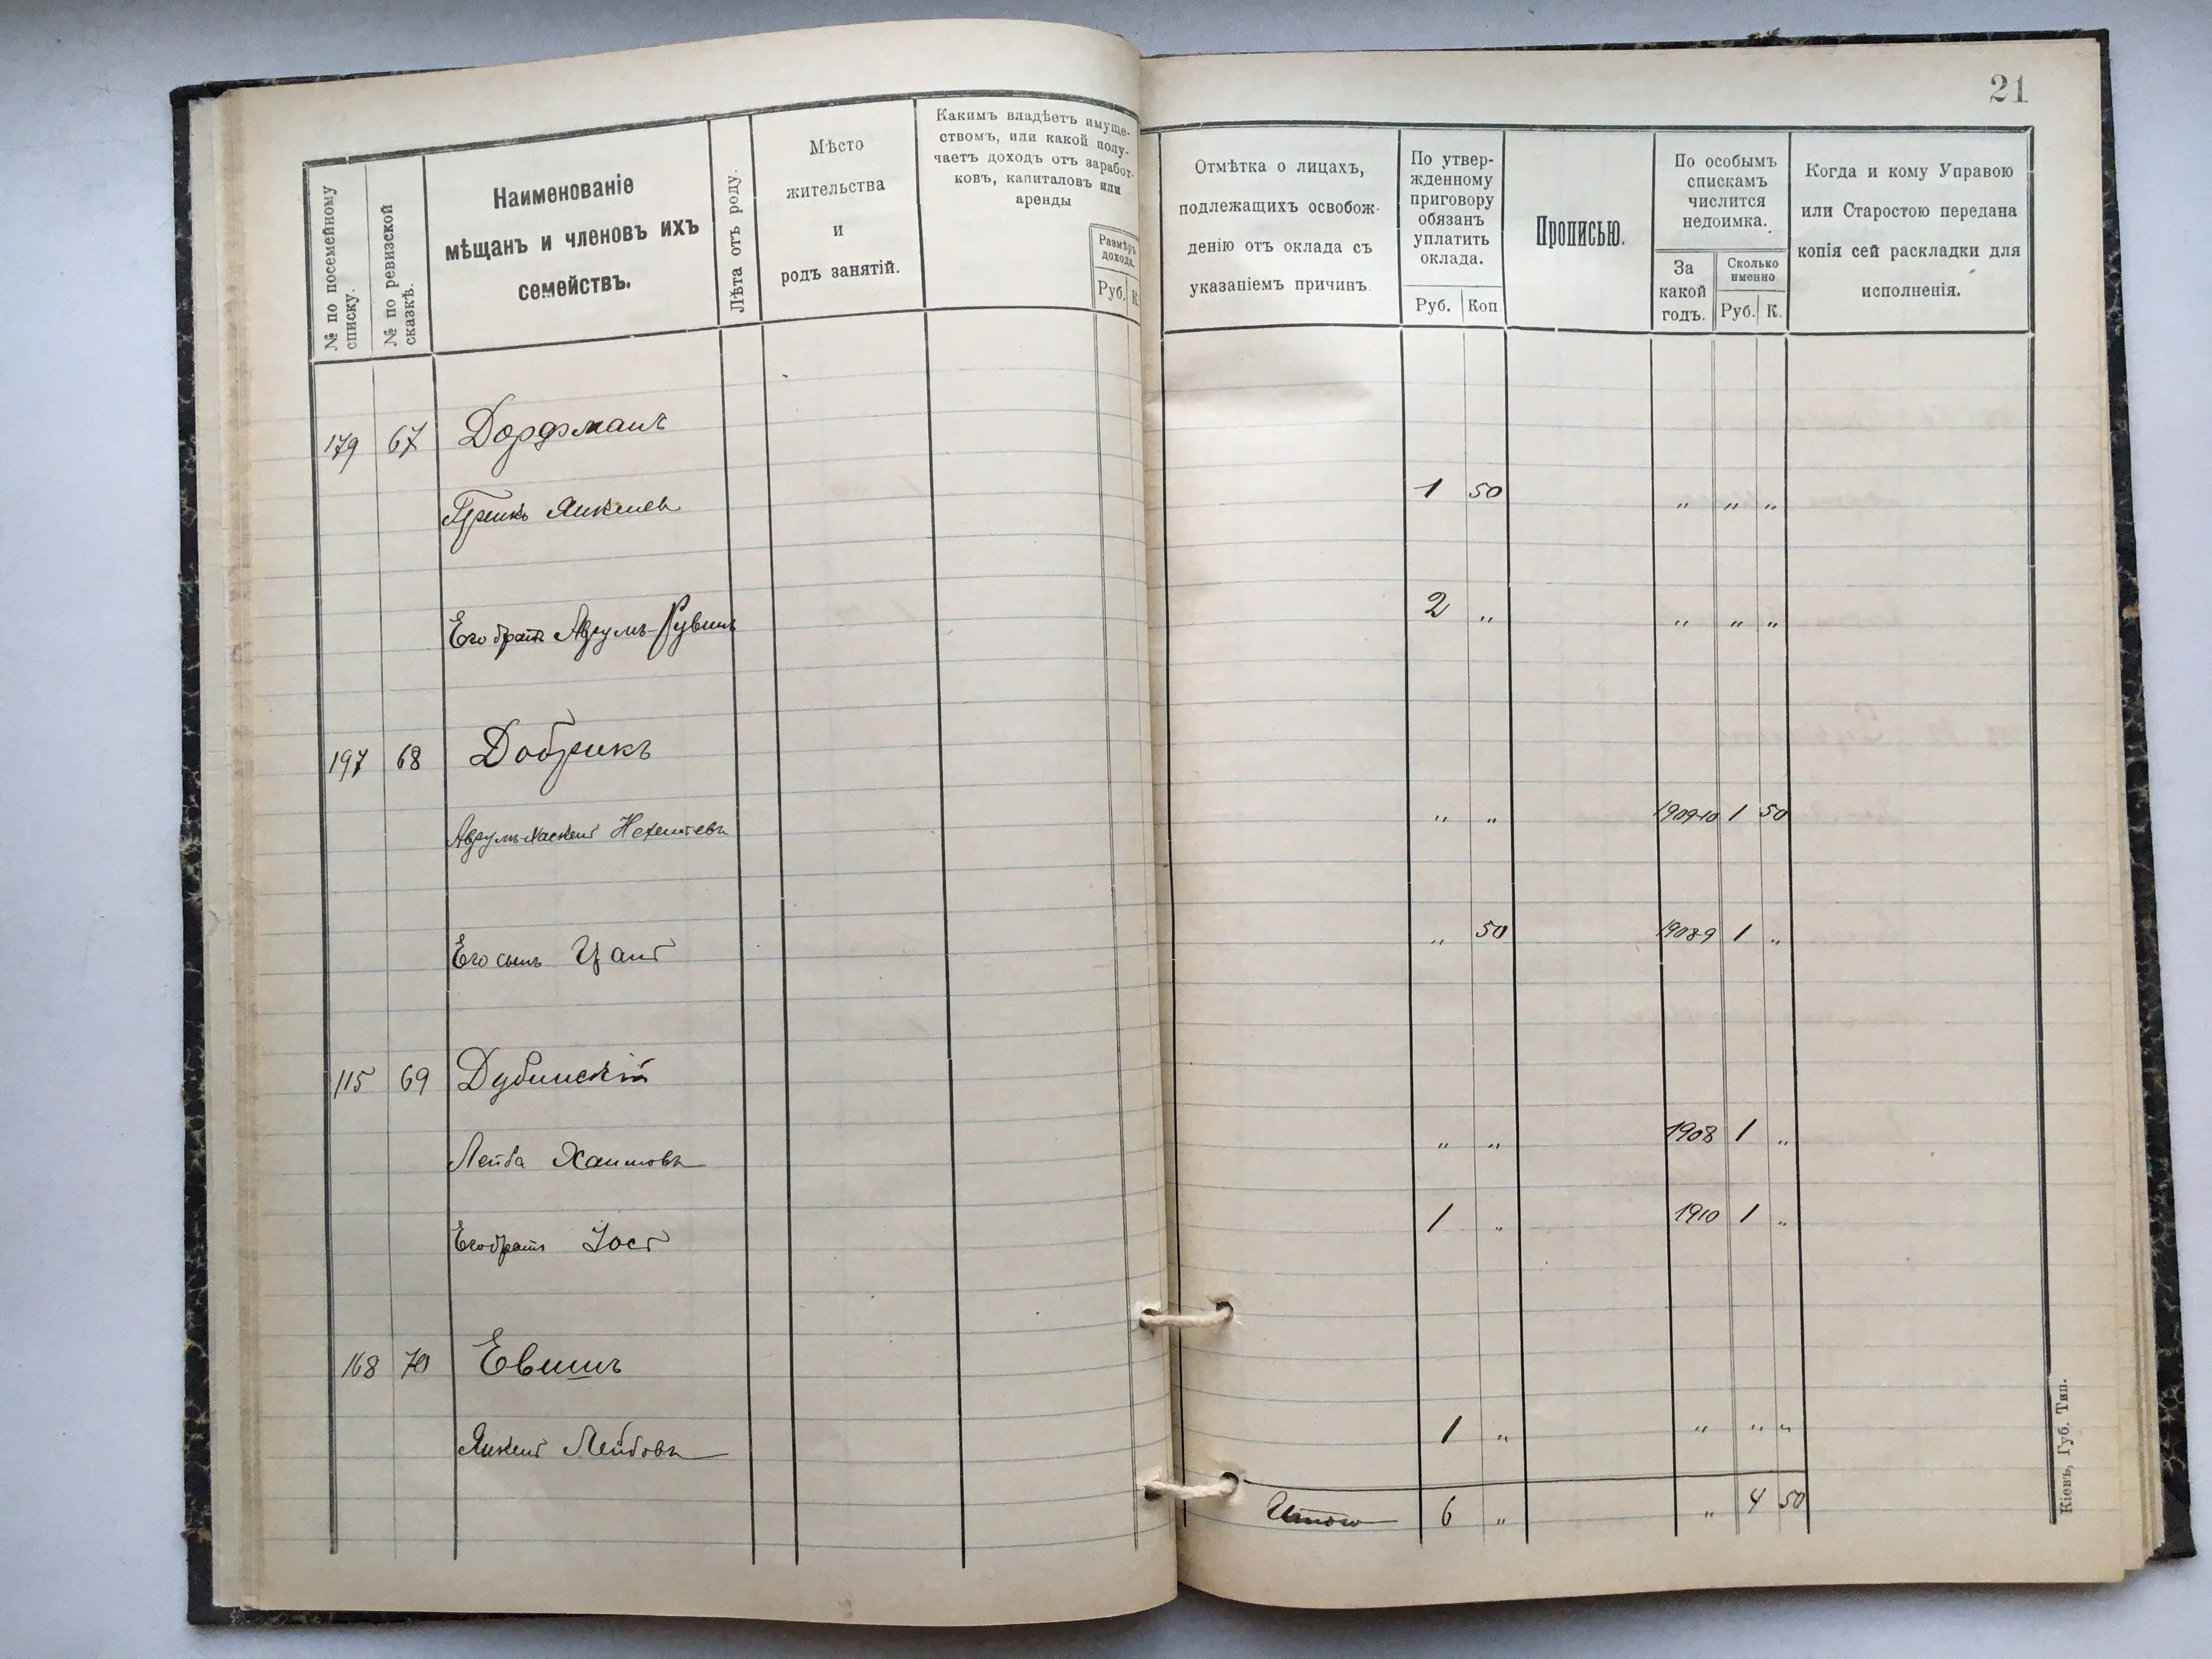 21
№ по посемейному
списку.
№ по ревизской
сказкѣ.
Наименованіе
мѣщанъ и членовъ ихъ
семействъ.
Лѣта отъ роду.
Мѣсто
жительства
и
родъ занятій.
Какимъ владѣетъ имуще-
ствомъ, или какой полу-
чаетъ доходъ отъ заработ-
ковъ, капиталовъ или
аренды
Размѣръ
дохода.
Руб. К.
Отмѣтка о лицахъ,
подлежащихъ освобож-
денію отъ оклада съ
указаніемъ причинъ
По утвер-
жденному
приговору
обязанъ
уплатить
оклада.
Руб. Коп
Прописью.
По особымъ
спискамъ
числится
недоимка.
За
какой
годъ.
Сколько
именно
Руб. К.
Когда и кому Управою
или Старостою передана
копія сей раскладки для
исполненія.
179 67 Дорфманъ
Янкелев 1 50 " " "
Его братъ Аврумъ-Рувинъ 2 " " " "
197 68 Добрикъ
Аврумъ-Хаскель " " 1909-10 1 50
Его сынъ " 50 1908-9 1 "
115 69 Дубинскій
Лейба Хаимовъ " " 1908 1 "
Его братъ Іось 1 " 1910 1 "
168 70 Евшинъ
Янкель Лейбовъ 1 " " " "
Итого 6 " " 4 50
Кіевъ, Губ. Тип.